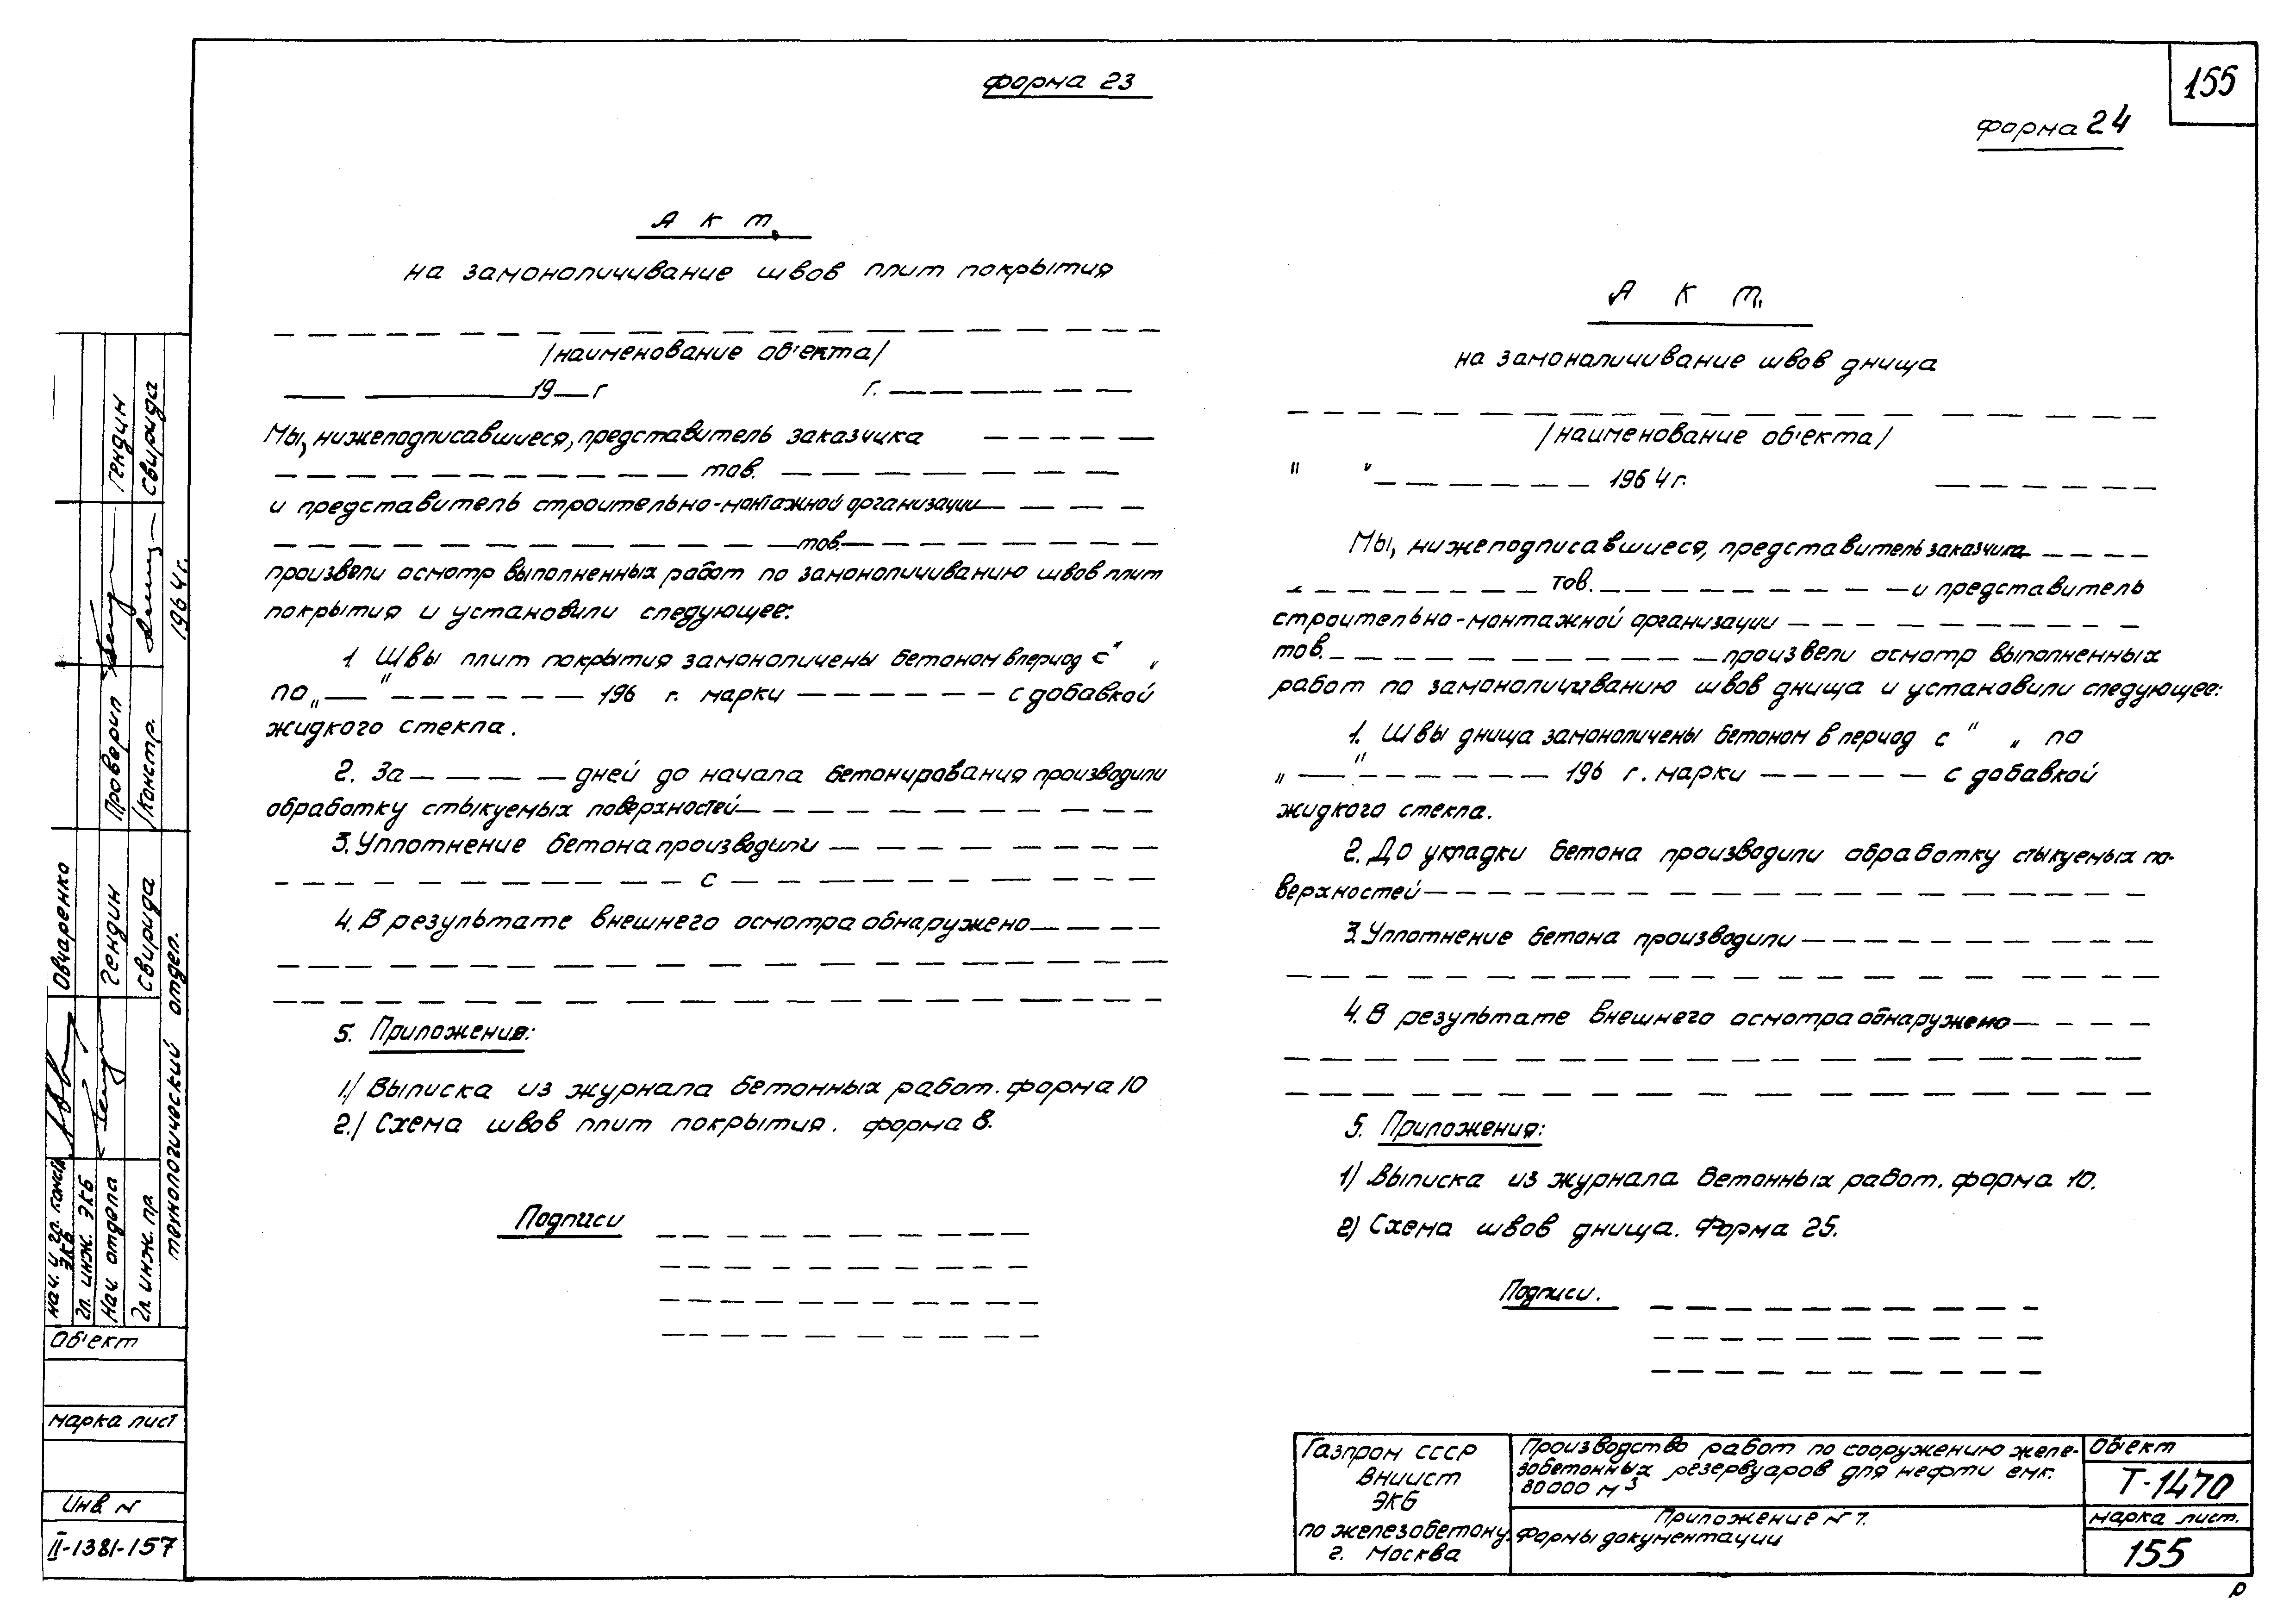 155
Форма 23
А К т
на замоноличивание швов плит покрытия
/наименование об'екта/
19 г г.
Мы, нижеподписавшиеся, представитель заказчика
тов.
и представитель строительно-монтажной организации
тов.
произвели осмотр выполненных работ по замоноличиванию швов плит
покрытия и установили следующее:
1 Швы плит покрытия замоноличены бетоном в период с " "
по " " 196 г. марки с добавкой
жидкого стекла.
2. За дней до начала бетонирования производили
обработку стыкуемых поверхностей
3. Уплотнение бетона производили
с
4. В результате внешнего осмотра обнаружено
5. Приложение:
1./ Выписка из журнала бетонных работ. форма 10
2./ Схема швов плит покрытия. форма 8.
Подписи
Форма 24
А К т.
на замоноличивание швов днища
/наименование об'екта/
" " 1964 г.
Мы, нижеподписавшиеся, представитель заказчика
тов. и представитель
строительно-монтажной организации
тов. произвели осмотр выполненных
работ по замоноличиванию швов днища и установили следующее:
1. Швы днища замоноличены бетоном в период с " " по
" " 196 г. марки с добавкой
жидкого стекла.
2. До укладки бетона производили обработку стыкуемых по-
верхностей
3. Уплотнение бетона производили
4. В результате внешнего осмотра обнаружено
5. Приложения:
1) Выписка из журнала бетонных работ. форма 10.
2) Схема швов днища. Форма 25.
Подписи.
Газпром СССР
ВНИИСТ
ЭКБ
по железобетону
г. Москва
Производство работ по сооружению желе-
зобетонных резервуаров для нефти емк.
30000 м3
Приложение N 1.
Формы документации
Об'ект
Т-1470
марка лист.
155
р
нач. и гл. констр. ЭКБ Овчаренко
Гл. инж. ЭКБ
Нач. отдела Гендин
Гл. инж. пр. Свирида
Проверил Гендин
/Констр. Свирида
технологический отдел. 1964 г.
Об'ект
марка лист
Инв N
II-1381-157